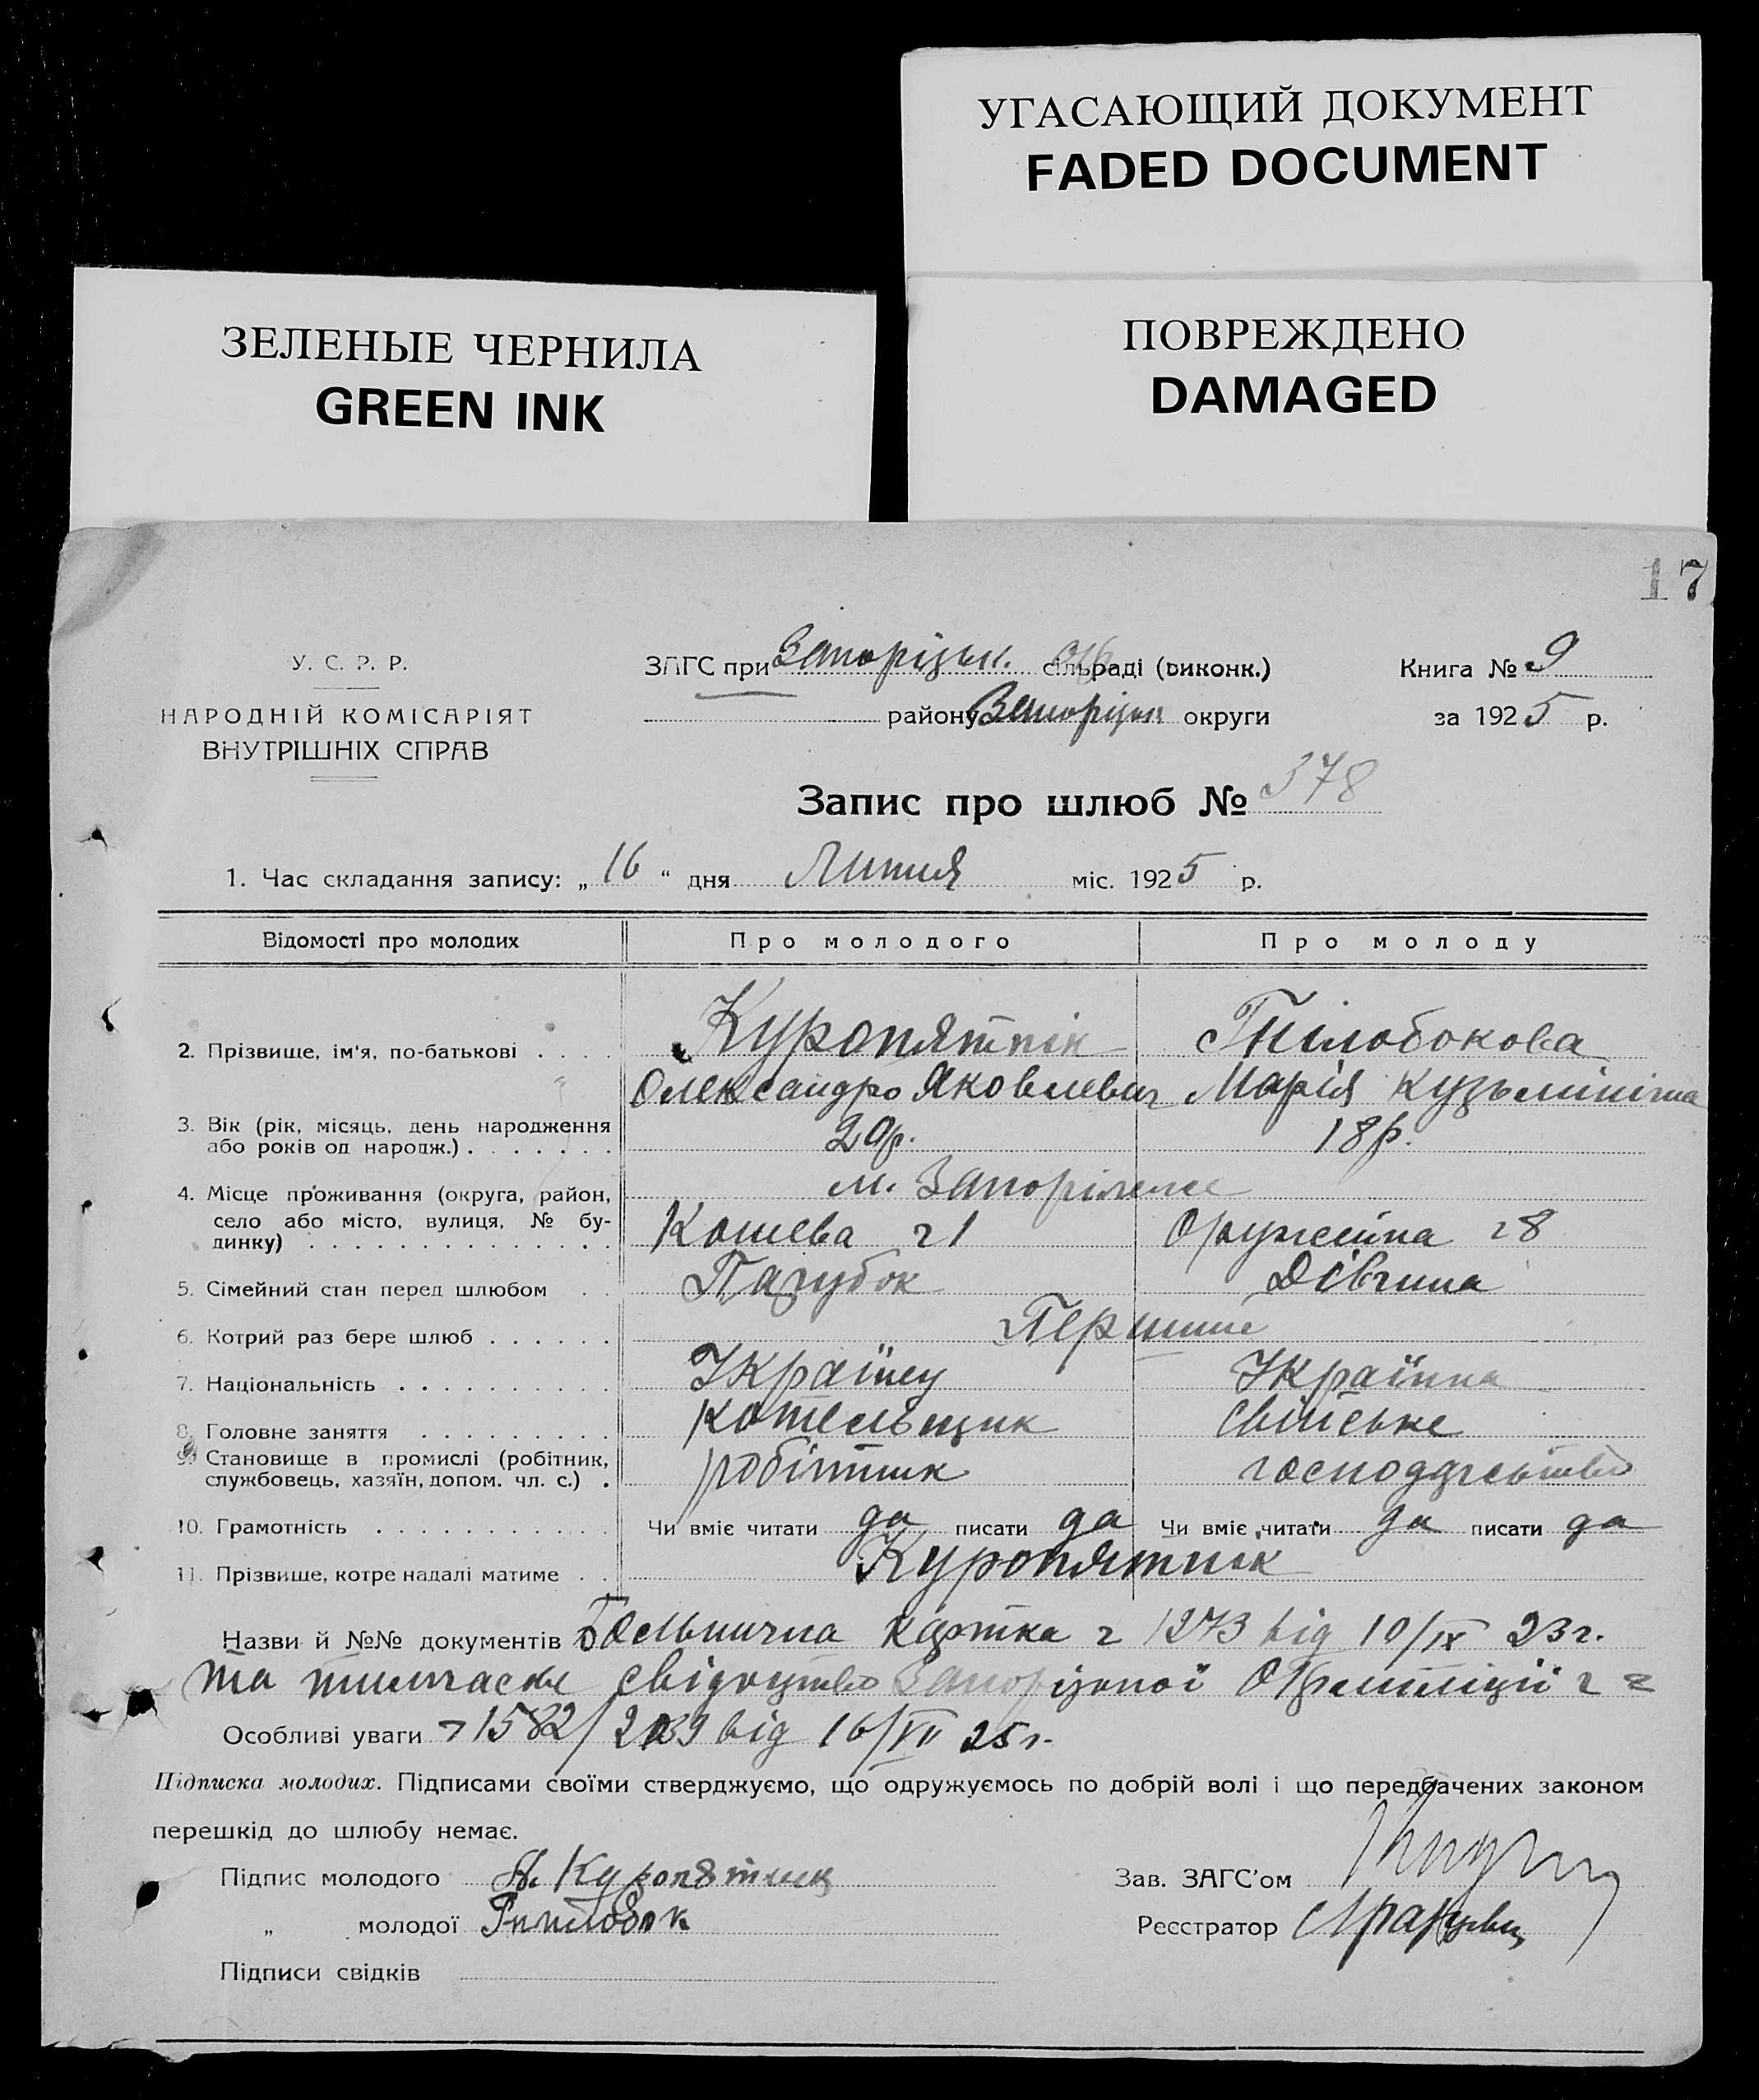 УГАСАЮЩИЙ ДОКУМЕНТ
FADED DOCUMENT
ЗЕЛЕНЫЕ ЧЕРНИЛА
GREEN INK
ПОВРЕЖДЕНО
DAMAGED
17
У. С. Р. Р.
НАРОДНІЙ КОМІСАРІЯТ
ВНУТРІШНІХ СПРАВ
ЗАГС при Запорізьк. сільраді (виконк.)
району Запорізьк округи
Книга № 9
за 1925 р.
Запис про шлюб № 378
1. Час складання запису: „16“ дня Липня міс. 1925 р.
Відомості про молодих Про молодого Про молоду
2. Прізвище, ім'я, по-батькові . . . . Куропятнік Гнілобокова
Олександро Яковлевич Марія Кузьмінічна
3. Вік (рік, місяць, день народження
або років од народж.) . . . . . . . 20р. 18р.
4. Місце проживання (округа, район, м. Запоріжжє
село або місто, вулиця, № бу-
динку) . . . . . . . . . . . . . Кошева ч 1 Оружейна ч 8
5. Сімейний стан перед шлюбом . . Парубок Дівчина
6. Котрий раз бере шлюб . . . . . . Перший
7. Національність . . . . . . . . . . Українец Українка
8. Головне заняття . . . . . . . . . котельщик свійське
9. Становище в промислі (робітник,
службовець, хазяїн, допом. чл. с.) . робітник господарьство
10. Грамотність . . . . . . . . . . . Чи вміє читати да писати да Чи вміє читати да писати да
11. Прізвище, котре надалі матиме . . Куропятнік
Назви й №№ документів Больнична картка ч 1273 від 10/IX 23г.
та тимчасове свідоцтво Запорізької ч
Особливі уваги 1582/2039 від 16/VII 25г.
Підписка молодих. Підписами своїми стверджуємо, що одружуємось по добрій волі і що передбачених законом
перешкід до шлюбу немає.
Підпис молодого А. Куропятник
Зав. ЗАГС'ом
„ молодої Гнилобок
Реєстратор
Підписи свідків